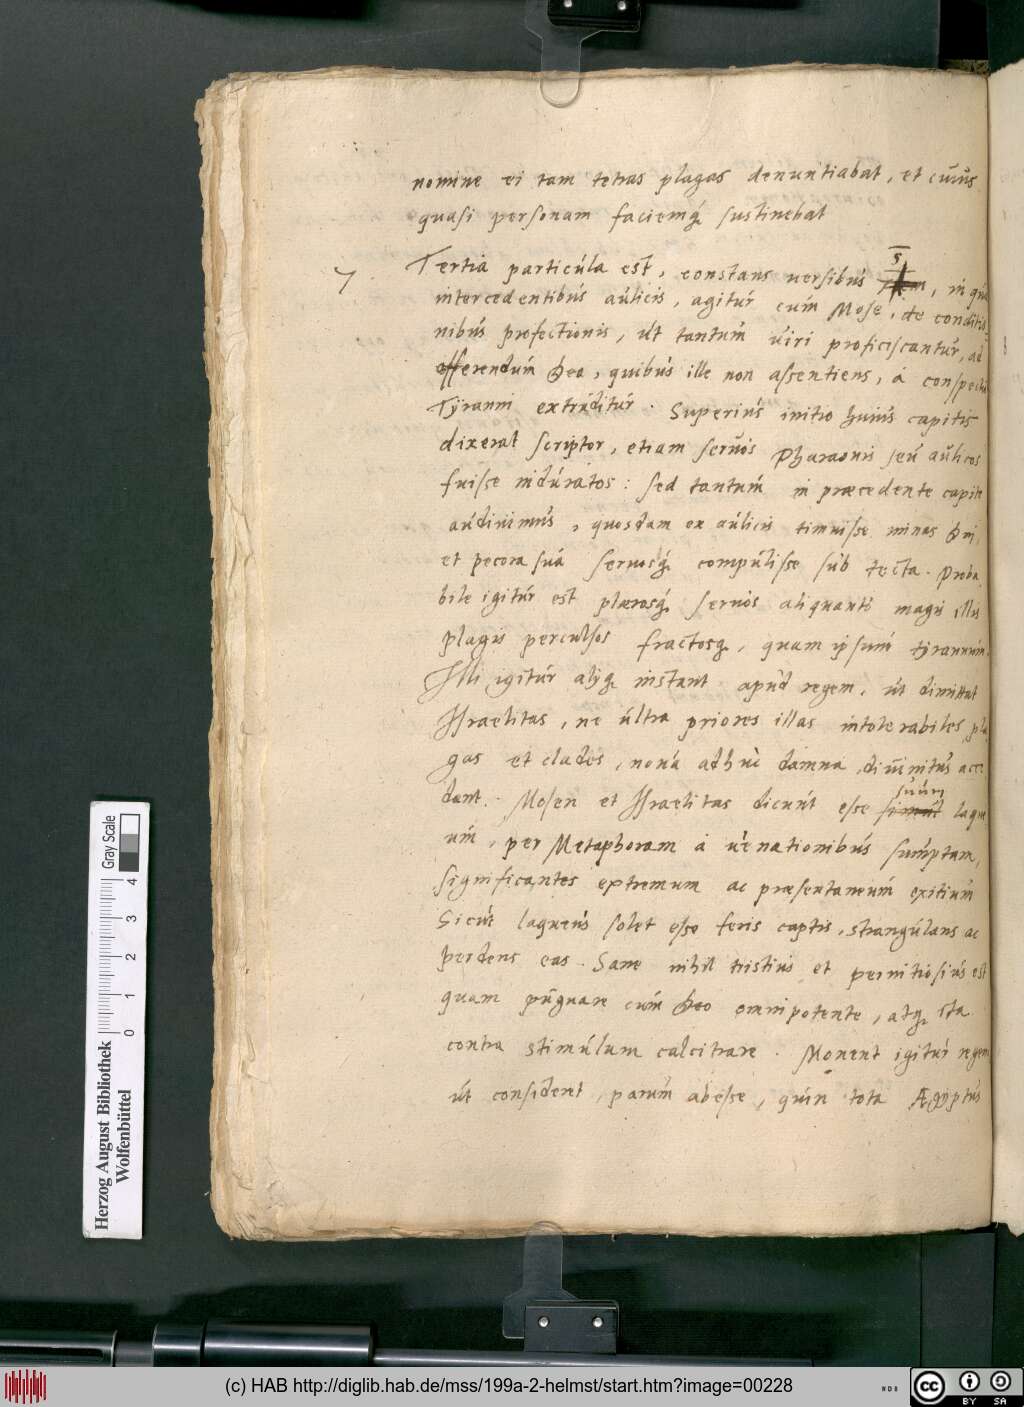 nomine ei tam tetras plagas denuntiabat, et cuius
quasi personam faciemq́; sustinebat
7 Tertia particula est, constans versibus 5, in qua
intercedentibus aulicis, agitur cum Mose, de conditio
nibus profectionis, ut tantum viri proficiscantur, ad
offerendum Deo, quibus ille non assentiens, a conspectu
Tyranni extruditur. Superius initio huius capitis
dixerat scriptor, etiam servos Pharaonis seu aulicos
fuisse induratos: sed tantum in præcedente capite
audivimus, quosdam ex aulicis timuisse minas Dei,
et pecora sua servosq́; compulisse sub tecta. Proba
bile igitur est plærosq́; servos aliquanto magis illis
plagis perculsos fractosq́;, quam ipsum tyrannum.
Illi igitur atq́; instant apud regem, ut dimittat
Israelitas, ne ultra priores illas intolerabiles pla
gas et clades, nova adhuc damna divinitus acce
dant. Mosen et Israelitas dicunt esse suum laque
um, per Metaphoram a venationibus sumptam,
significantes extremum ac præsentaneum exitium
Sicut laqueus solet esse feris captis, strangulans ac
perdens eas. Sane nihil tristius et pernitiosius est
quam pugnare cum Deo omnipotente, atq́; ita
contra stimulum calcitrare. Monent igitur regem
ut consideret, parum abesse, quin tota Ægyptus
Herzog August Bibliothek
Wolfenbüttel
0 1 2 3 4
Gray Scale
(c) HAB http://diglib.hab.de/mss/199a-2-helmst/start.htm?image=00228
cc BY SA